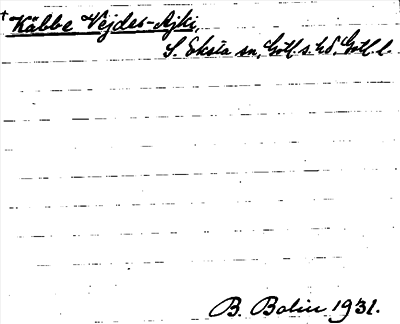 + Käbbe Vejdes-Ajki,
S. Eksta sn, Gotl. s. hd, Gotl. l.
B. Bolin 1931.